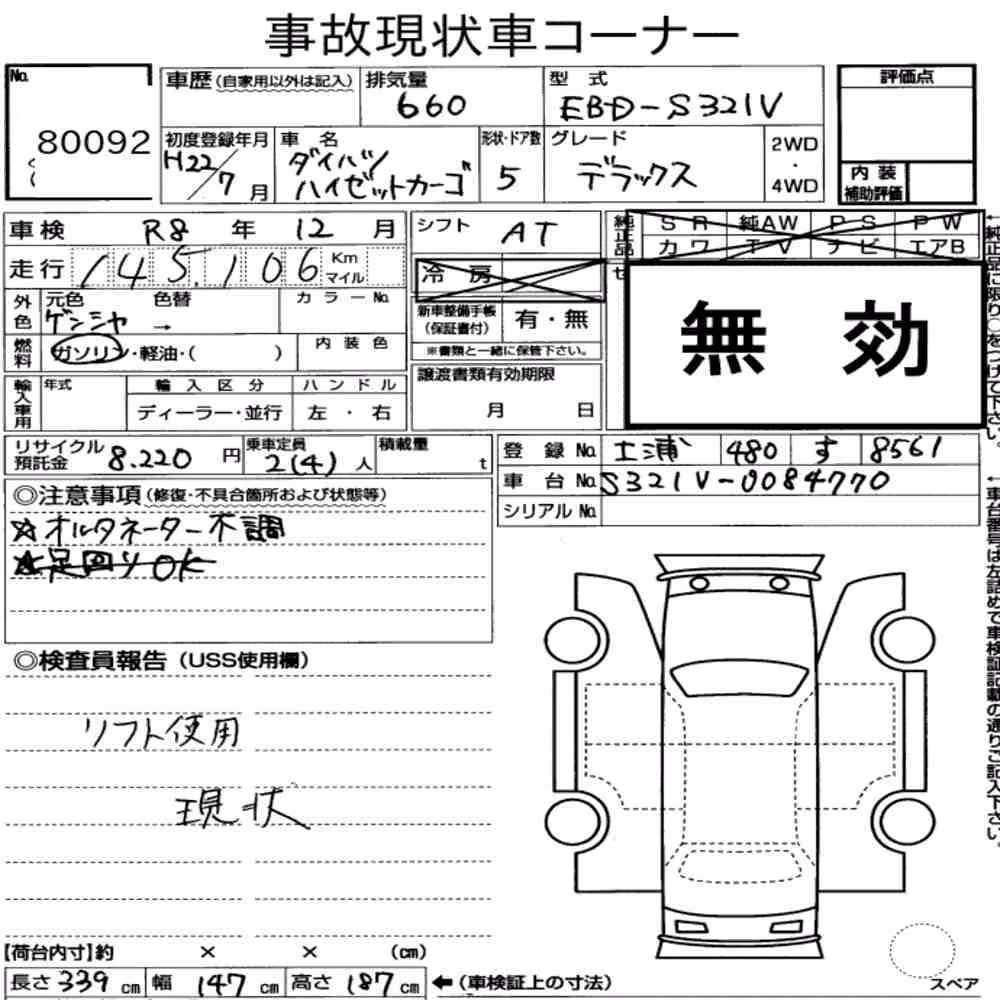 事故現状車コーナー
No. 80092
車歴 (自家用以外は記入)
排気量 660
型式 EBD-S321V
評価点
初度登録年月 H22/7月
車名 ダイハツ ハイゼットカーゴ
形状・ドア数 5
グレード デラックス
2WD・4WD
内装補助評価
車検 R8年 12月
シフト AT
純正品 SR 純AW PS PW
カワ TV ナビ エアB
走行 145,106 Km マイル
冷房
無効
外色 元色 ゲンシャ → 色替
カラーNo.
新車整備手帳(保証書付) 有・無
※書類と一緒に保管下さい。
燃料 ガソリン・軽油・( )
内装色
譲渡書類有効期限
月 日
輸入車用 年式
輸入区分 ディーラー・並行
ハンドル 左・右
リサイクル預託金 8.220円
乗車定員 2(4)人
積載量 t
登録No. 土浦 480 す 8561
車台No. S321V-0084770
シリアルNo.
◎注意事項 (修復・不具合箇所および状態等)
☆オルタネーター不調
☆足回りOK
◎検査員報告 (USS使用欄)
リフト使用
現状
【荷台内寸】約 × × (cm)
長さ 339cm 幅 147cm 高さ 187cm ←(車検証上の寸法)
スペア
←純正品に限り○をつけて下さい。
←車台番号は左詰めで車検証記載の通りご記入下さい。